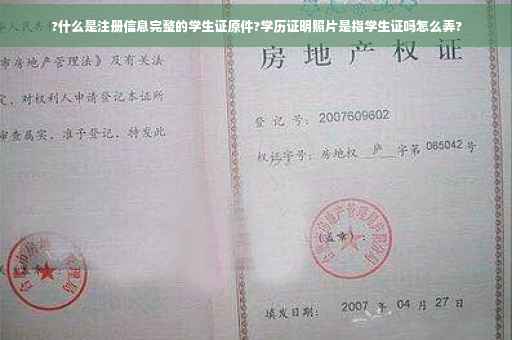 ?什么是注册信息完整的学生证原件?学历证明照片是指学生证吗怎么弄?
市房地产管理法》及有关法
定，对权利人申请登记本证所
审查属实，准予登记，特发此
房地产权证
登记号：2007609602
权证字号：房地权 庐 字第 085042 号
（盖章）：
填发日期： 2007 年 04 月 27 日